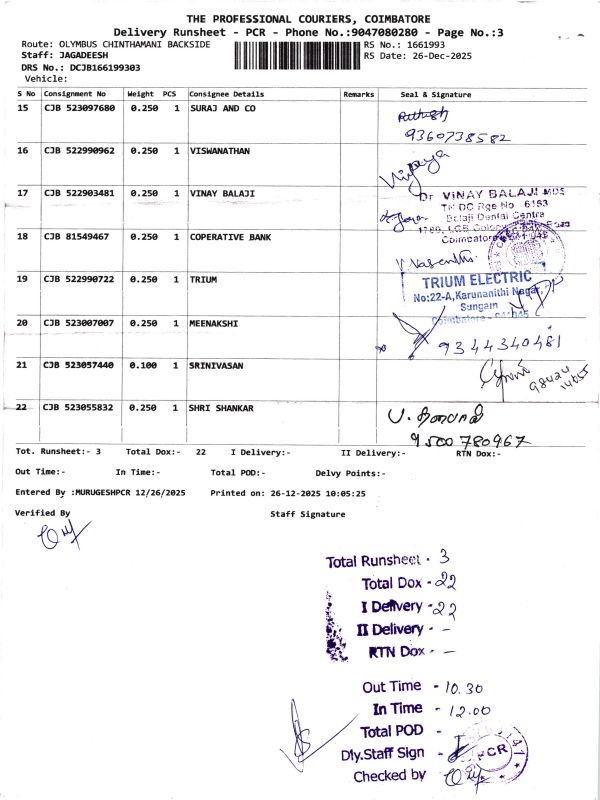 THE PROFESSIONAL COURIERS, COIMBATORE
Delivery Runsheet - PCR - Phone No.:9047080280 - Page No.:3
Route: OLYMBUS CHINTHAMANI BACKSIDE RS No.: 1661993
Staff: JAGADEESH RS Date: 26-Dec-2025
DRS No.: DCJB166199303
Vehicle:
S No Consignment No Weight PCS Consignee Details Remarks Seal & Signature
15 CJB 523097680 0.250 1 SURAJ AND CO
9360738582
16 CJB 522990962 0.250 1 VISWANATHAN
Vijaya
17 CJB 522903481 0.250 1 VINAY BALAJI
Dr VINAY BALAJI MDS
TN DC Rge No 6183
Balaji Dental Centre
18 CJB 81549467 0.250 1 COPERATIVE BANK
Coimbatore
V. Vasanthi
19 CJB 522990722 0.250 1 TRIUM
TRIUM ELECTRIC
No:22-A, Karunanithi Nagar,
Sungam
Coimbatore - 641045
20 CJB 523007007 0.250 1 MEENAKSHI
9344340481
21 CJB 523057440 0.100 1 SRINIVASAN
98424
14655
22 CJB 523055832 0.250 1 SHRI SHANKAR
9500780967
Tot. Runsheet:- 3 Total Dox:- 22 I Delivery:- II Delivery:- RTN Dox:-
Out Time:- In Time:- Total POD:- Delvy Points:-
Entered By :MURUGESHPCR 12/26/2025 Printed on: 26-12-2025 10:05:25
Verified By Staff Signature
Total Runsheet - 3
Total Dox - 22
I Delivery - 22
II Delivery - -
RTN Dox - -
Out Time - 10.30
In Time - 12.00
Total POD -
Dly.Staff Sign - PCR
Checked by